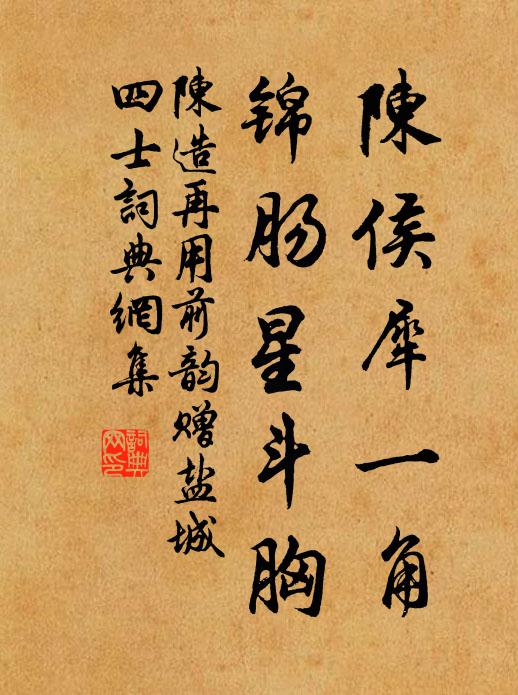 陳侯犀一角
锦肠星斗胸
陳造再用前韵赠盐城
四士詞典網集
詞典网印